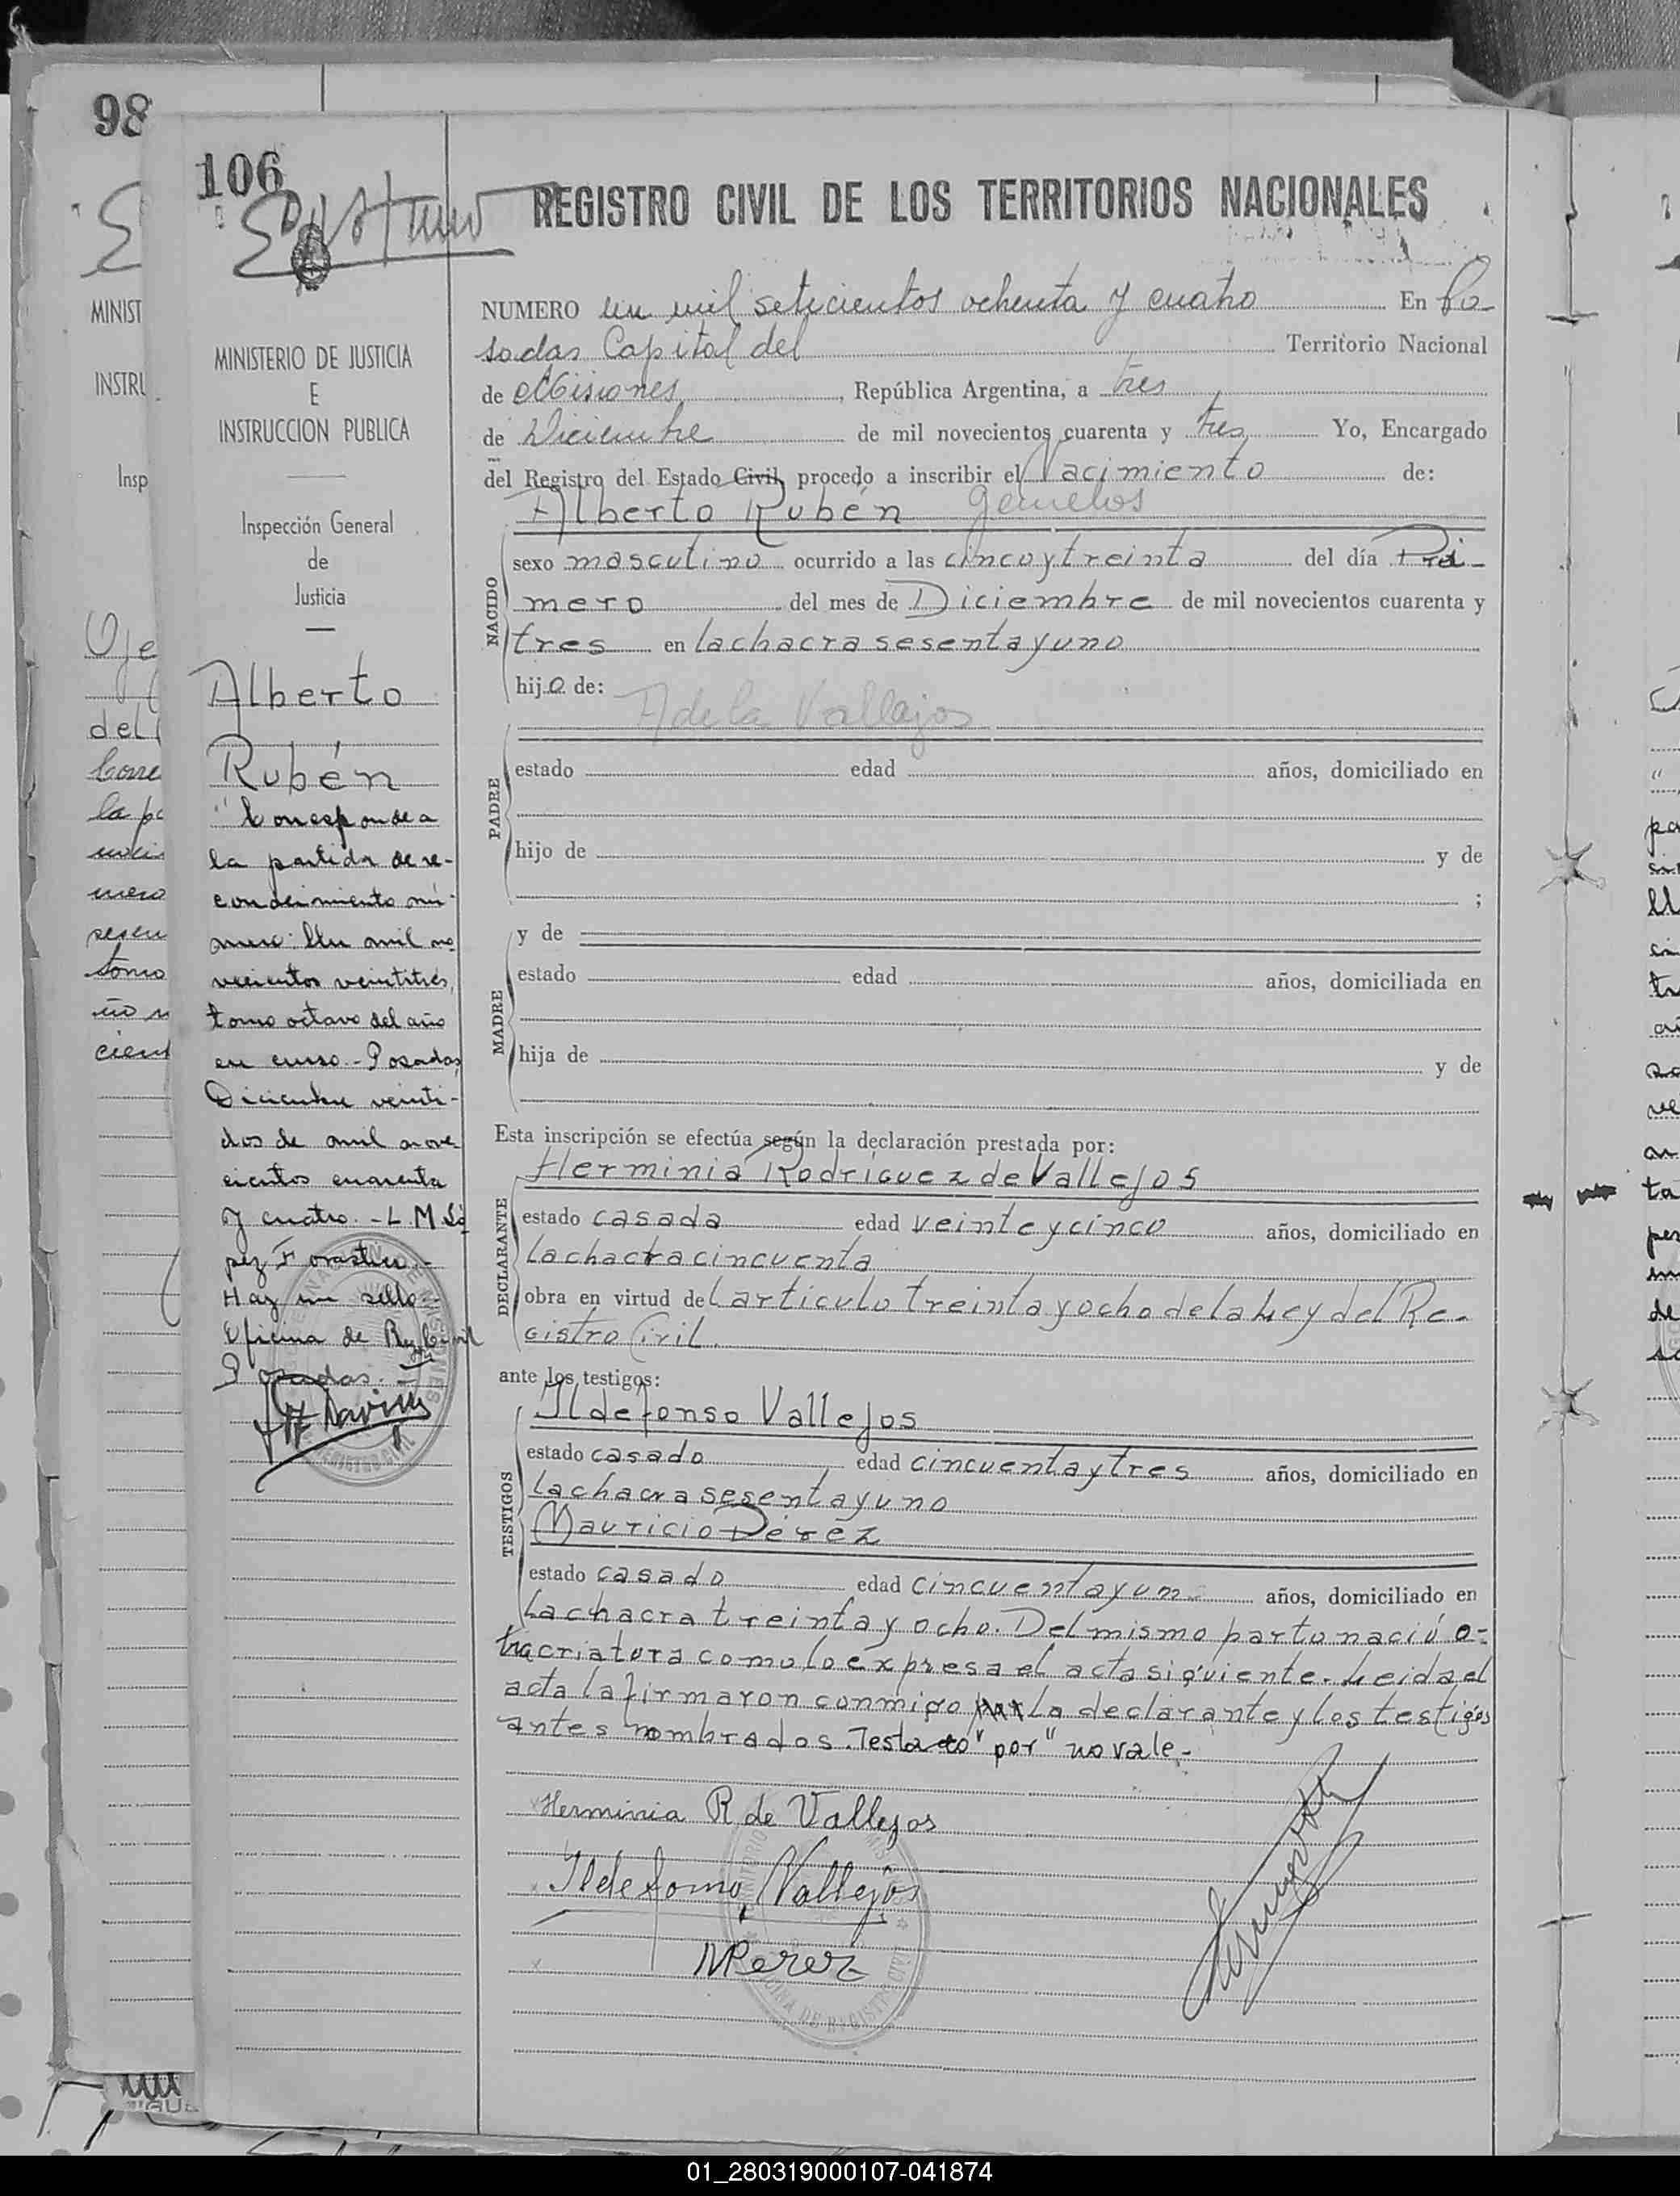 98
106
REGISTRO CIVIL DE LOS TERRITORIOS NACIONALES
MINISTERIO DE JUSTICIA
E
INSTRUCCION PUBLICA
Inspección General
de
Justicia
Alberto
Rubén
"Corresponde a
la partida de re-
conocimiento nú-
mero: Un mil no
vecientos veintitrés,
tomo octavo del año
en curso.- Posadas,
Diciembre veinti-
dos de mil nove-
cientos cuarenta
y cuatro.- L. M Ló
pez Forastier.-
Hay un sello.-
Oficina de Reg. Civil
Posadas.-
NUMERO un mil seticientos ochenta y cuatro En Po-
sadas Capital del Territorio Nacional
de Misiones, República Argentina, a tres
de Diciembre de mil novecientos cuarenta y tres Yo, Encargado
del Registro del Estado Civil, procedo a inscribir el Nacimiento de:
Alberto Rubén gemelos
NACIDO
sexo masculino ocurrido a las cinco y treinta del día Pri-
mero del mes de Diciembre de mil novecientos cuarenta y
tres en la chacra sesenta y uno
hijo de:
Adela Vallejos
PADRE
estado edad años, domiciliado en
hijo de y de
;
MADRE
y de
estado edad años, domiciliada en
hija de y de
Esta inscripción se efectúa según la declaración prestada por:
DECLARANTE
Herminia Rodríguez de Vallejos
estado casada edad veinte y cinco años, domiciliado en
la chacra cincuenta
obra en virtud del artículo treinta y ocho de la Ley del Re-
gistro Civil.
ante los testigos:
TESTIGOS
Ildefonso Vallejos
estado casado edad cincuenta y tres años, domiciliado en
la chacra sesenta y uno
Mauricio Pérez
estado casado edad cincuenta y un años, domiciliado en
la chacra treinta y ocho. Del mismo parto nació o-
tra criatura como lo expresa el acta siguiente. Leida el
acta la firmaron conmigo por la declarante y los testigos
antes nombrados. Testado "por" no vale.-
Herminia R de Vallejos
Ildefonso Vallejos
M Perez
01_280319000107-041874